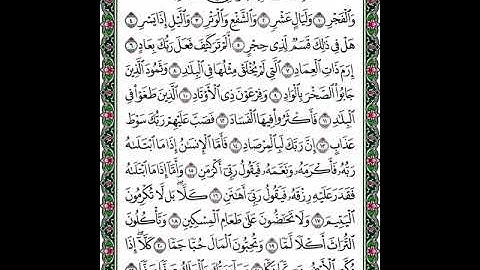 وَالْفَجْرِ ١ وَلَيَالٍ عَشْرٍ ٢ وَالشَّفْعِ وَالْوَتْرِ ٣ وَالَّيْلِ إِذَا يَسْرِ ٤
هَلْ فِي ذَٰلِكَ قَسَمٌ لِّذِي حِجْرٍ ٥ أَلَمْ تَرَ كَيْفَ فَعَلَ رَبُّكَ بِعَادٍ ٦
إِرَمَ ذَاتِ الْعِمَادِ ٧ الَّتِي لَمْ يُخْلَقْ مِثْلُهَا فِي الْبِلَٰدِ ٨ وَثَمُودَ الَّذِينَ
جَابُوا الصَّخْرَ بِالْوَادِ ٩ وَفِرْعَوْنَ ذِي الْأَوْتَادِ ١٠ الَّذِينَ طَغَوْا فِي
الْبِلَٰدِ ١١ فَأَكْثَرُوا فِيهَا الْفَسَادَ ١٢ فَصَبَّ عَلَيْهِمْ رَبُّكَ سَوْطَ
عَذَابٍ ١٣ إِنَّ رَبَّكَ لَبِالْمِرْصَادِ ١٤ فَأَمَّا الْإِنسَٰنُ إِذَا مَا ابْتَلَىٰهُ
رَبُّهُ فَأَكْرَمَهُ وَنَعَّمَهُ فَيَقُولُ رَبِّي أَكْرَمَنِ ١٥ وَأَمَّا إِذَا مَا ابْتَلَىٰهُ
فَقَدَرَ عَلَيْهِ رِزْقَهُ فَيَقُولُ رَبِّي أَهَٰنَنِ ١٦ كَلَّا بَل لَّا تُكْرِمُونَ
الْيَتِيمَ ١٧ وَلَا تَحَٰضُّونَ عَلَىٰ طَعَامِ الْمِسْكِينِ ١٨ وَتَأْكُلُونَ
التُّرَاثَ أَكْلًا لَّمًّا ١٩ وَتُحِبُّونَ الْمَالَ حُبًّا جَمًّا ٢٠ كَلَّا إِذَا